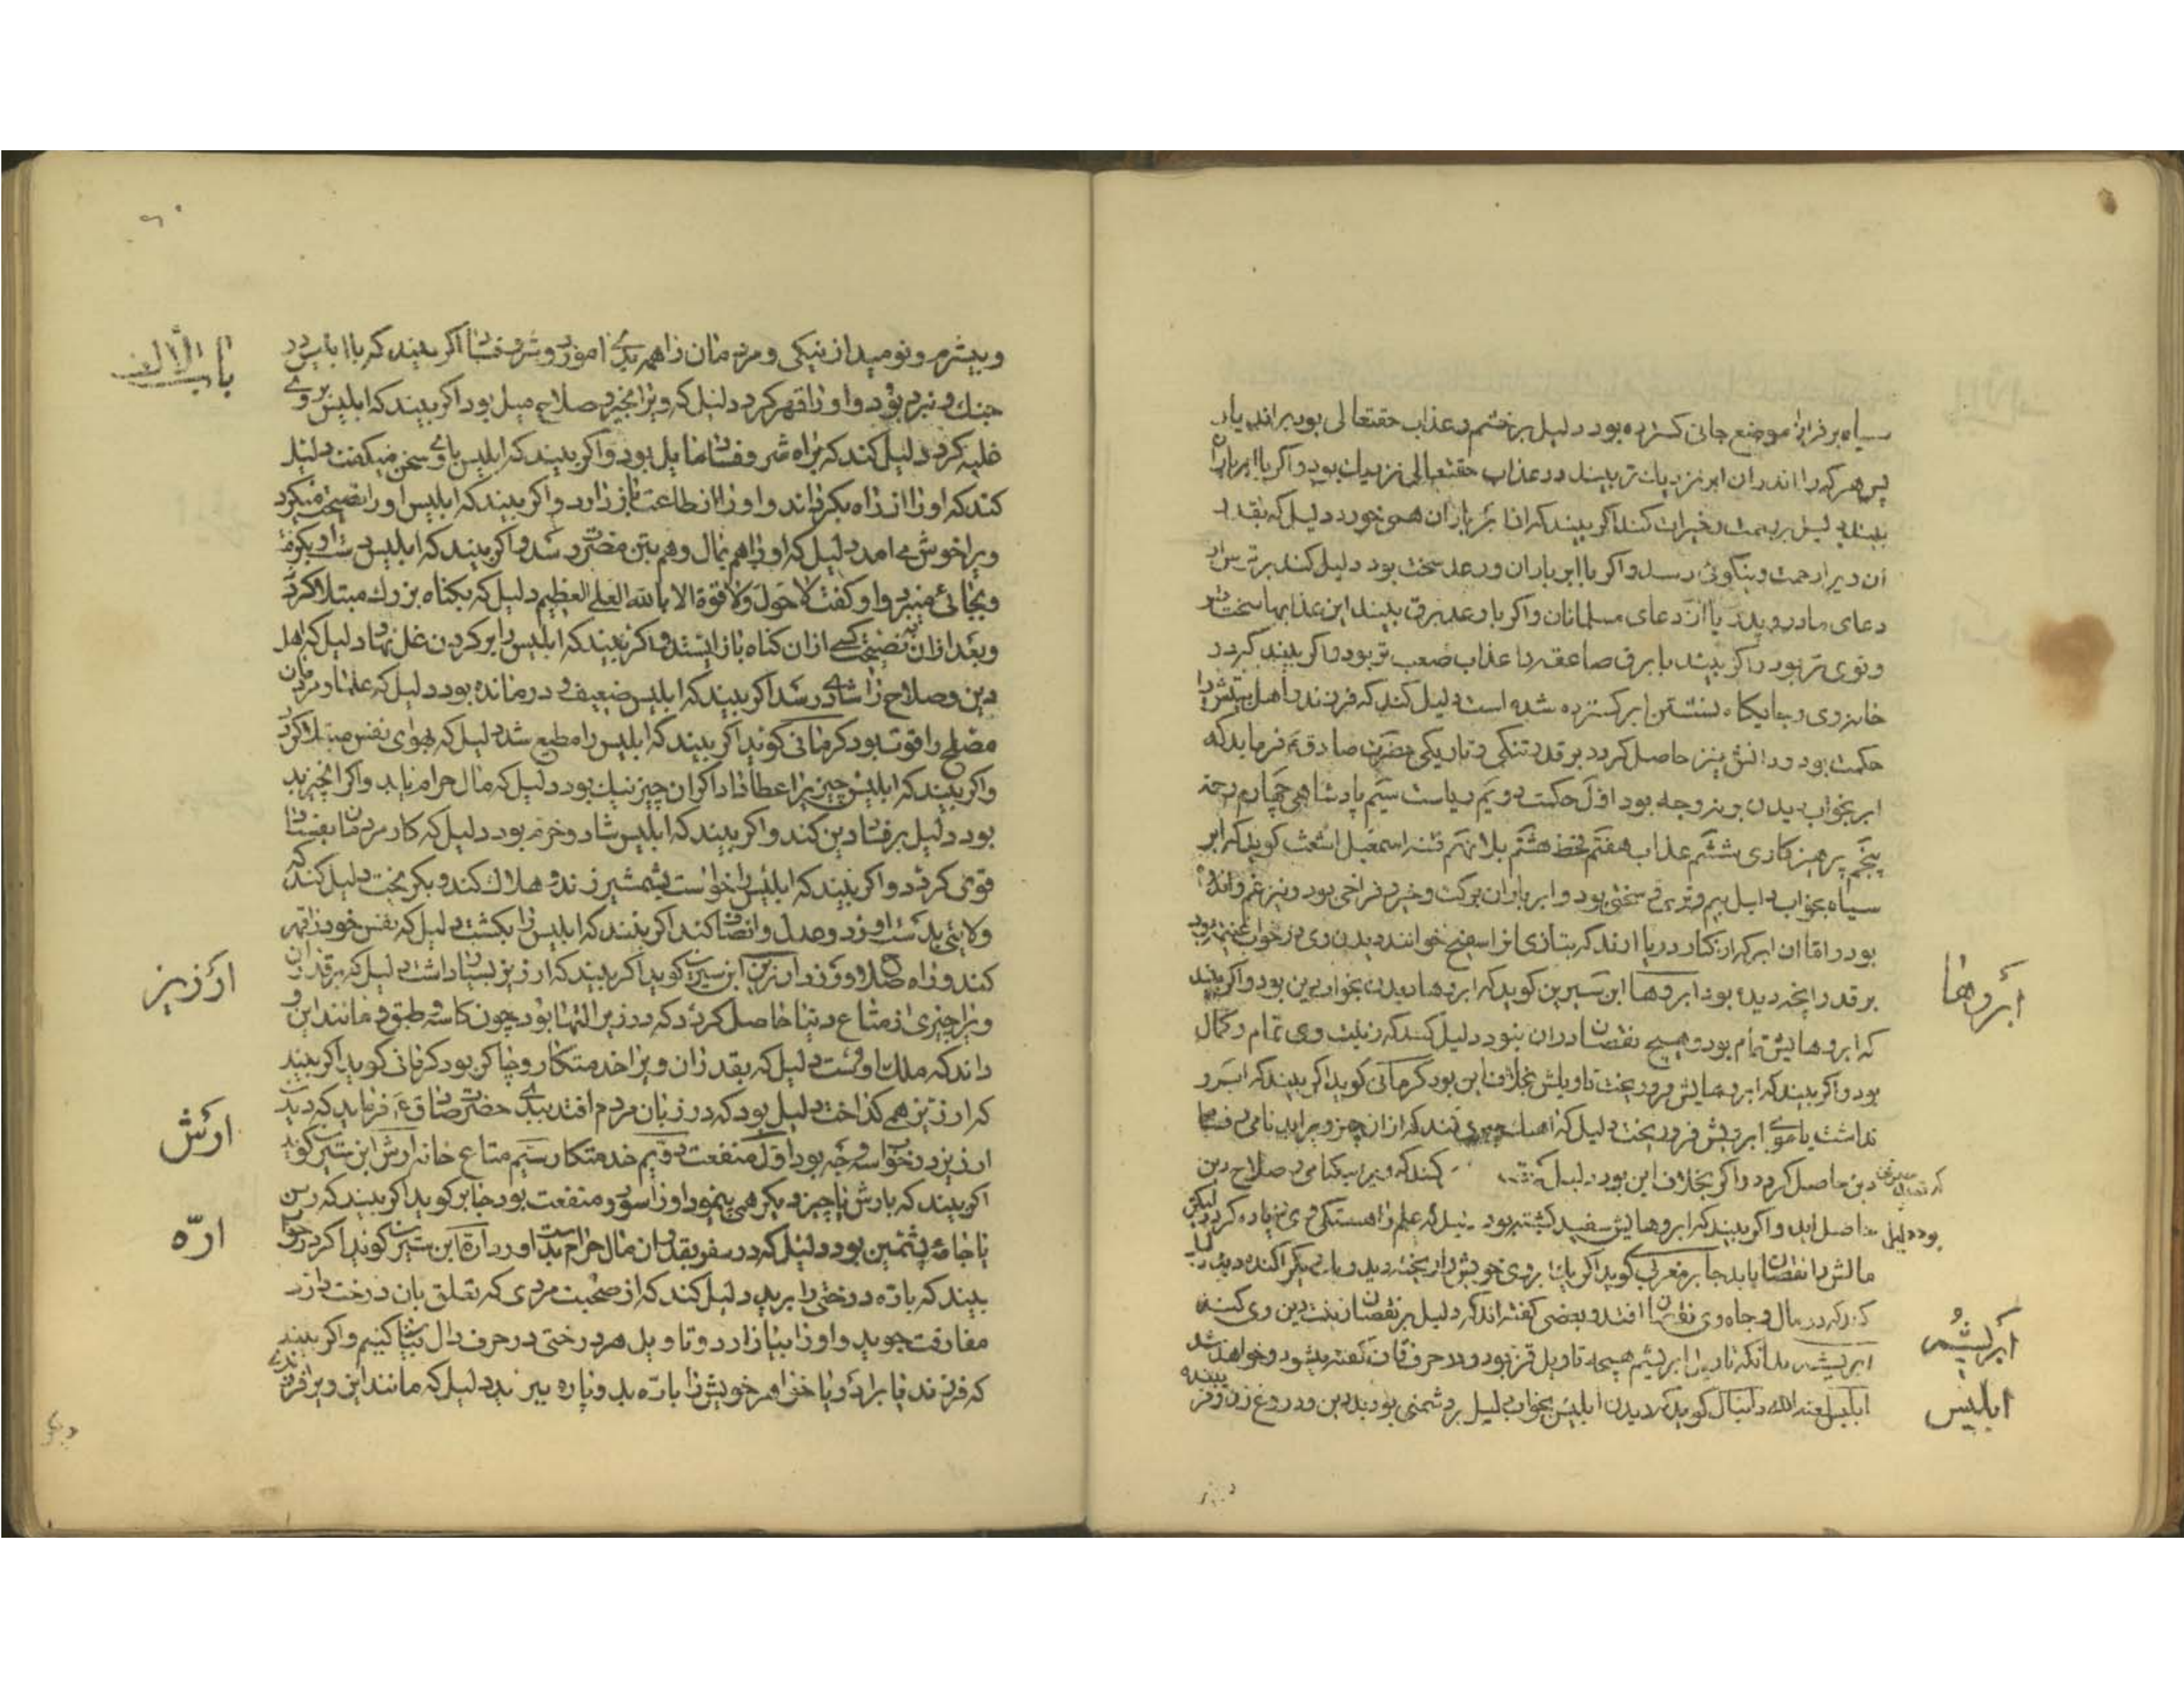 سیاه بر فراز موضع جائی کسترده بود دلیل بر خشم و عذاب حقتعالی بود براندیار
پس هر که را اندران ابر نزدیك تر بیند در عذاب حقتعالی نزدیك بود و اکر با ابر باران
بیند دلیل بر رحمت و خیرات کند اکر بیند که از ابر باران همی خورد دلیل که بقدر
ان ویرا رحمت و نیکوئی رسد و اکر با ابر باران و رعد سخت بود دلیل کند بر ترس از
دعای مادر و پدر یا از دعای مسلمانان و اکر با رعد برق بیند این عذابها سخت تر
و قوی تر بود و اکر بیند با برق صاعقه را عذاب صعب تر بود و اکر بیند کرد در
خانه وی و جایکاه نشستن ابر کسترده شده است دلیل کند که فرزند و اهل بیتش را
حکمت بود و دانش نیز حاصل کردد بر قدر تنکی و تاریکی حضرت صادق ع فرماید که
ابر بخواب دیدن بر نه وجه بود اول حکمت دویم ریاست سیم پادشاهی چهارم رحمة
پنجم پرهیزکاری ششم عذاب هفتم قحط هشتم بلا نهم فتنه اسمعیل اشعث کوید که ابر
سیاه بخواب دلیل بیم و ترس و سختی بود و ابر باران برکت و خیر و فراخی بود و نیز غم و اندوه
بود و اما ان ابر که از کنار دریا ارند که بتازی انرا اسفنج خوانند دیدن وی در خواب غنیمه بود
بر قدر انچه دیده بود ابروها ابن سیرین کوید که ابروها دیدن بخواب دین بود و اکر بیند
که ابروهایش تمام بود و هیچ نقصان دران نبود دلیل کند که زینت وی تمام و کمال
بود و اکر بیند که ابروهایش فرو ریخت تاویلش بخلاف این بود کرمانی کوید اکر بیند که ابرو
نداشت یا موی ابرویش فرو ریخت دلیل که کند که ازان چیز ویرا بدنامی و فساد
دین حاصل کردد و اکر بخلاف این بود دلیل کند که ویرا نیکنامی و صلاح دین
حاصل اید و اکر بیند که ابروهایش سفید کشته بود دلیل که علم و اهستکی وی زیاده کردد لیکن
مالش را نقصان یابد جابر مغربی کوید اکر یك ابروی خویش را ریخته دید و با دیکر اکنده دید
که در مال و جاه وی نقصان افتد و بعضی کفته اند که دلیل بر نقصان زینت دین وی کند
ابریشم بدانکه تاویل ابریشم همچو تاویل قز بود و در حرف قاف کفته میشود و خواهد شد
ابلیس لعنه الله دانیال کوید که دیدن ابلیس بخواب دلیل بر دشمنی بود بددین و دروغ زن و فریبنده
ابروها
ابریشم
ابلیس
باب الالف
و بیشرم و نومید از نیکی و مردمان را همه بدی اموزد و شر و فساد اکر بیند که با ابلیس در
جنك و نبرد بود و او را قهر کرد دلیل که ویرا بخیر و صلاح میل بود اکر بیند که ابلیس بروی
غلبه کرد دلیل کند که براه شر و فساد مایل بود و اکر بیند که ابلیس با وی سخن میکفت دلیل
کند که او را از راه بکرداند و او را از طاعت باز دارد و اکر بیند که ابلیس او را نصیحت میکرد
ویرا خوش می امد دلیل که او را هم بمال و هم بتن مضرت رسد و اکر بیند که ابلیس دست او بکرفت
و بجائی میبرد و او کفت لا حول و لا قوة الا بالله العلی العظیم دلیل که بکناه بزرك مبتلا کردد
و بعد ازان به نصیحت کسی ازان کناه باز ایستد و اکر بیند که ابلیس را بر کردن غل نهاد دلیل که اهل
دین و صلاح را شادی رسد اکر بیند که ابلیس ضعیف و درمانده بود دلیل که علما و مردمان
مصلح را قوت بود کرمانی کوید اکر بیند که ابلیس را مطیع شد دلیل که بهوای نفس مبتلا کردد
و اکر بیند که ابلیس چیز ویرا عطا داد اکر ان چیز نیك بود دلیل که مال حرام یابد و اکر انچیز بد
بود دلیل بر فساد دین کند و اکر بیند که ابلیس شاد و خرم بود دلیل که کار مردمان بفساد
قوی کردد و اکر بیند که ابلیس را خواست بشمشیر زند و هلاك کند و بکریخت دلیل کند که
ولایتی بدست اورد و عدل و انصاف کند اکر بیند که ابلیس را بکشت دلیل که نفس خود را قهر
کند و راه صلاح ورزد ارزیز ابن سیرین کوید اکر بیند که ارزیز بسیار داشت دلیل که بر قدر ان
ویرا چیزی از متاع دنیا حاصل کردد که درزیر التها بود چون کاسه و طبق و مانند این و
داند که ملك اوست دلیل که بقدر ان ویرا خدمتکار و چاکر بود کرمانی کوید اکر بیند
که ارزیز همی کداخت دلیل بود که در زبان مردم افتد ببدی حضرت صادق ع فرماید که دیدن
ارزیز در خواب سه وجه بود اول منفعت دویم خدمتکار سیم متاع خانه ارش ابن سیرین کوید
اکر بیند که بارش یا چیز دیکر همی پیمود او را سود و منفعت بود جابر کوید اکر بیند که رسن
یا جامه پشمین بود دلیل که در سفر بقدر ان مال حرام بدست اورد ارة ابن سیرین کوید اکر در خواب
بیند که باره درختی را برید دلیل کند که از صحبت مردی که تعلق بان درخت دارد
مفارقت جوید و او را بیازارد و تاویل هر درختی در حرف دال بیان کنیم و اکر بیند
که فرزند یا برادر و یا خواهر خویش را باره بدو پاره ببرید دلیل که مانند این ویرا فرزند
ارزیز
ارش
ارّه